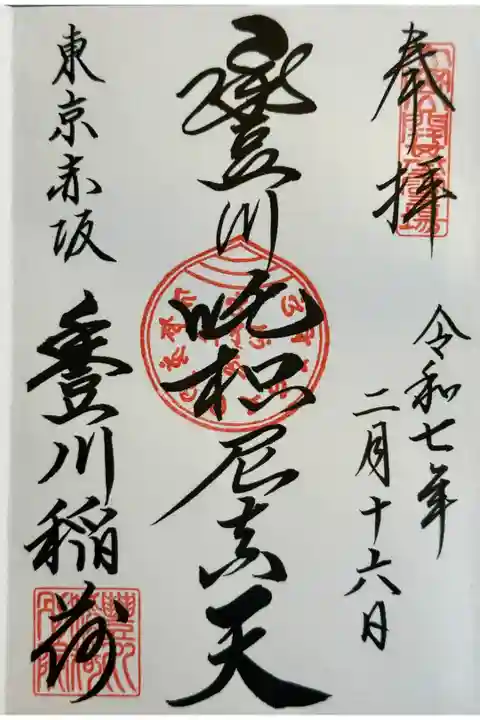 奉拝
令和七年
二月十六日
豊川吒枳尼真天
東京赤坂
豊川稲荷